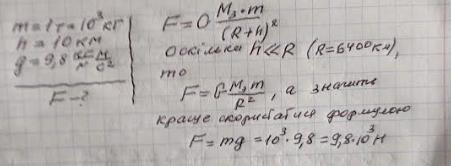 m = 1т = 10³ кг
h = 10 км
g = 9,8 м/с²
F - ?
F = G M₃·m / (R+h)²
Оскільки h ≪ R (R=6400км),
то
F = G M₃m / R² , а значить
краще скористатися формулою
F = mg = 10³·9,8 = 9,8·10³ Н